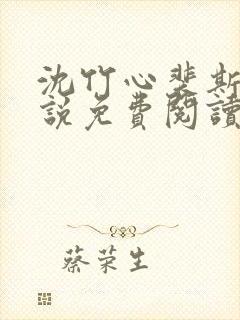 沈竹心裴斯
説免費閱讀
蔡荣生